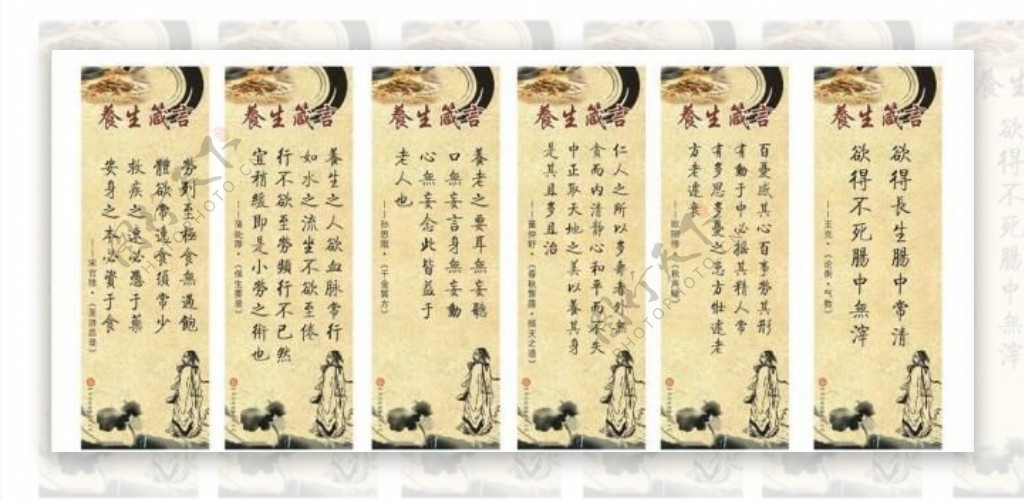 養生箴言
勞到至極食無過飽
體欲常逸食須常少
救疾之速必憑于藥
安身之本必資于食
養生箴言
養生之人欲血脉常行
如水之流坐不欲至倦
行不欲至勞頻行不已然
宜稍緩即是小勞之術也
——蒲处厚·《保生要录》
養生箴言
養老之要耳無妄聽
口無妄言身無妄動
心無妄念此皆益于
老人也
——孙思邈·《千金翼方》
養生箴言
仁人之所以多壽者外無
貪而内清静心和平而不失
中正取天地之美以養其身
是其且多且治
——董仲舒·《春秋繁露·循天之道》
養生箴言
百憂感其心百事勞其形
有動于中必摇其精人常
有多思多憂之患方壮遽老
方老遽衰
養生箴言
欲得長生腸中常清
欲得不死腸中無滓
——王充·《论衡·气数》